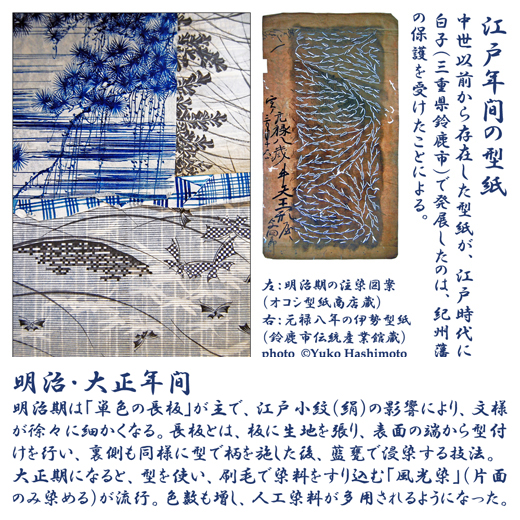 江戸年間の型紙
中世以前から存在した型紙が、江戸時代に
白子(三重県鈴鹿市)で発展したのは、紀州藩
の保護を受けたことによる。
元禄八歳
左:明治期の注染図案
(オコシ型紙商店蔵)
右:元禄八年の伊勢型紙
(鈴鹿市伝統産業館蔵)
photo ©Yuko Hashimoto
明治・大正年間
明治期は「単色の長板」が主で、江戸小紋(絹)の影響により、文様
が徐々に細かくなる。長板とは、板に生地を張り、表面の端から型付
けを行い、裏側も同様に型で柄を施した後、藍甕で浸染する技法。
大正期になると、型を使い、刷毛で染料をすり込む「風光染」(片面
のみ染める)が流行。色数も増し、人工染料が多用されるようになった。